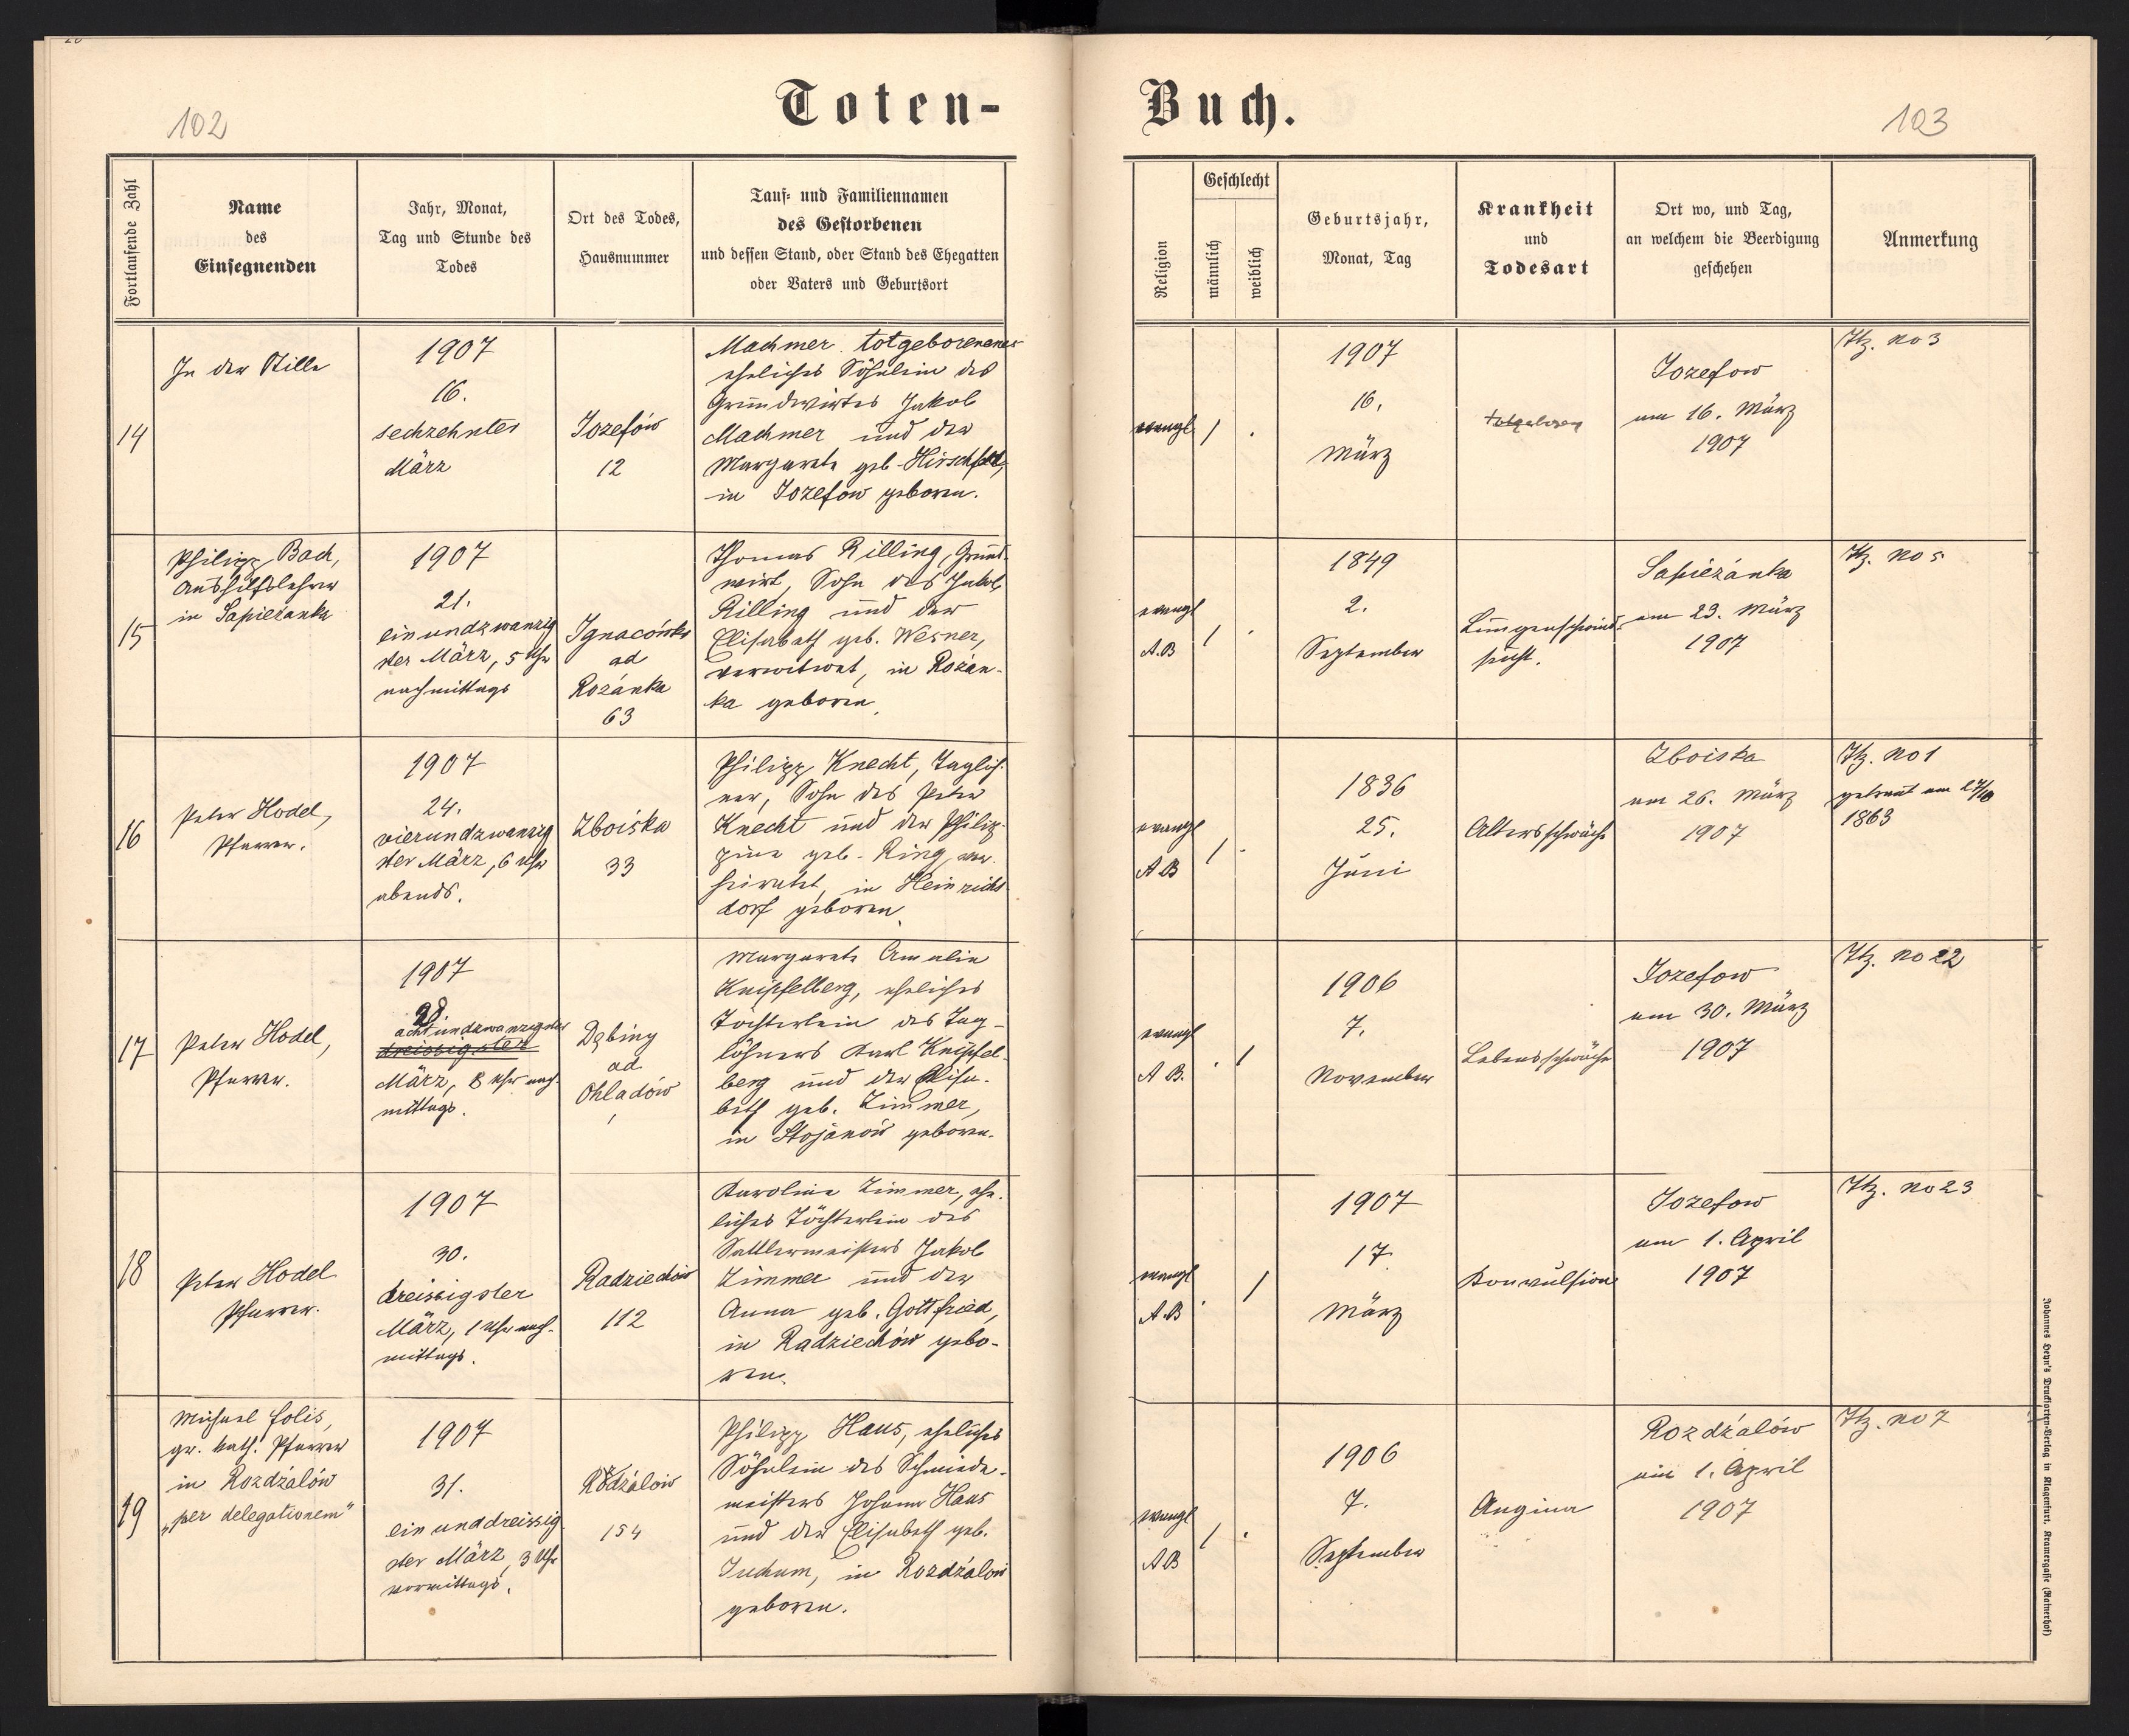 Toten-
Buch.
102
103
Fortlaufende Zahl
Name
des
Einsegnenden
Jahr, Monat,
Tag und Stunde des
Todes
Ort des Todes,
Hausnummer
Tauf- und Familiennamen
des Gestorbenen
und dessen Stand, oder Stand des Ehegatten
oder Vaters und Geburtsort
Religion
Geschlecht
männlich
weiblich
Geburtsjahr,
Monat, Tag
Krankheit
und
Todesart
Ort wo, und Tag,
an welchem die Beerdigung
geschehen
Anmerkung
14
In der Stille
1907
16.
sechzehnter
März
Jozefów
12
Machmer totgeborenenes
eheliches Söhnlein des
Grundwirtes Jakob
Machmer und der
Margareta geb. Hirschfeld,
in Jozefow geboren.
evangl
/ .
1907
16.
März
totgeboren
Jozefow
am 16. März
1907
Itz. no 3
15
Philipp Bach,
Aushilfslehrer
in Sapieżanka
1907
21.
einundzwanzig
ster März, 5 Uhr
nachmittags
Ignacówka
ad
Rozánka
63
Thomas Rilling, Grund-
wirt, Sohn des Jakob
Rilling und der
Elisabeth geb. Wesner,
verwitwet, in Rozan-
ka geboren.
evangl
A.B
/ .
1849
2.
September
Lungenschwind-
sucht.
Sapieżanka
am 23. März
1907
Itz. no 5
16
Peter Hodel,
Pfarrer.
1907
24.
vierundzwanzig
ster März, 6 Uhr
abends.
Zboiska
33
Philipp Knecht, Taglöh-
ner, Sohn des Peter
Knecht und der Philip-
pine geb. Ring, ver-
heiratet, in Heinrichs
dorf geboren.
evangl
A B
/ .
1836
25.
Juni
Altersschwäche
Zboiska
am 26. März
1907
Itz. no 1
getraut am 27/10
1863
17
Peter Hodel,
Pfarrer.
1907
28.
achtundzwanzigster
dreissigster
März, 8 Uhr nach-
mittags.
Dębiny
ad
Ohladów
Margareta Amalia
Knipfelberg, eheliches
Töchterlein des Tag-
löhners Karl Knipfel-
berg und der Elisa-
beth geb. Zimmer,
in Stojanów geboren.
evangl
A B.
. /
1906
7.
November
Lebensschwäche
Jozefow
am 30. März
1907
Itz. no 22
18
Peter Hodel
Pfarrer.
1907
30.
dreissigster
März, 1 Uhr nach-
mittags.
Radziechów
112
Karolina Zimmer, ehe-
liches Töchterlein des
Sattlermeisters Jakob
Zimmer und der
Anna geb. Gottfried,
in Radziechów gebo-
ren.
evangl
A.B
. /
1907
17.
März
Konvulsion
Jozefow
am 1. April
1907
Itz. no 23
19
Michael Folis,
gr. kath. Pfarrer
in Rozdżalów
„per delegationem"
1907
31.
einunddreissig
ster März, 3 Uhr
vormittags.
Rozdżalów
154
Philipp Haus, eheliches
Söhnlein des Schmiede-
meisters Johann Haus
und der Elisabeth geb.
Juchum, in Rozdżalów
geboren.
evangl
A B
/ .
1906
7.
September
Angina
Rozdżalów
am 1. April
1907
Itz. no 7
Johannes Heyn's Drucksorten-Verlag in Klagenfurt, Kramergasse (Rainerhof)